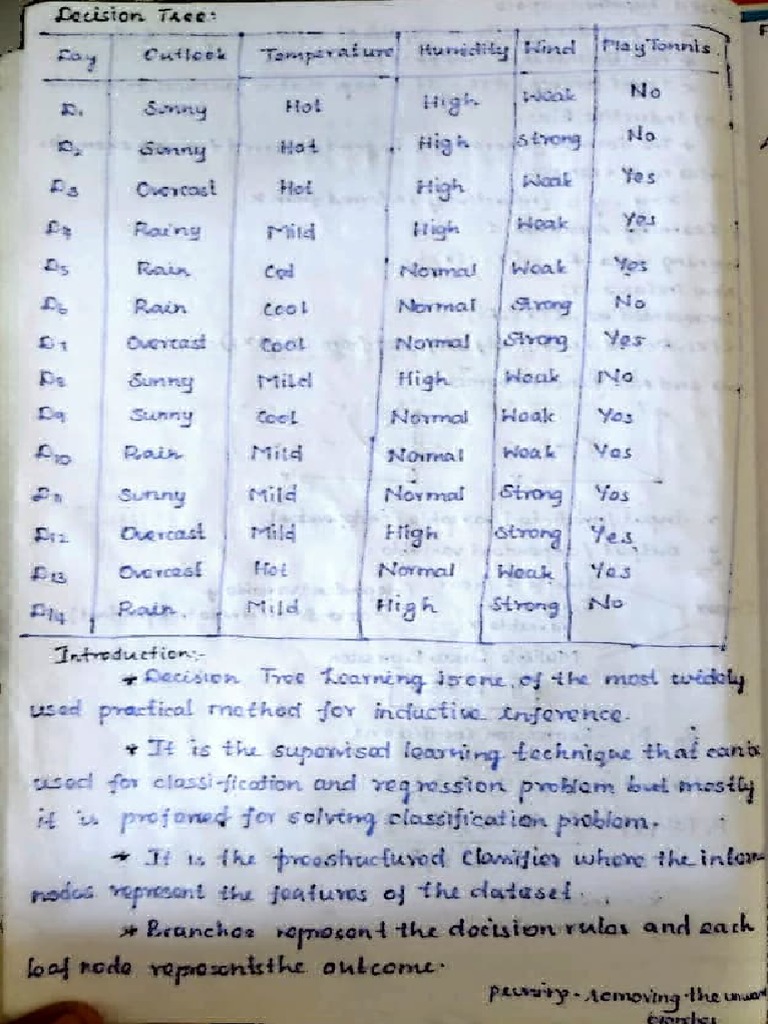 Decision Tree:
Day Outlook Temperature Humidity Wind Play Tennis
D1 Sunny Hot High Weak No
D2 Sunny Hot High Strong No
D3 Overcast Hot High Weak Yes
D4 Rainy Mild High Weak Yes
D5 Rain Col Normal Weak Yes
D6 Rain Cool Normal Strong No
D7 Overcast Cool Normal Strong Yes
D8 Sunny Mild High Weak No
D9 Sunny Cool Normal Weak Yes
D10 Rain Mild Normal Weak Yes
D11 Sunny Mild Normal Strong Yes
D12 Overcast Mild High Strong Yes
D13 Overcast Hot Normal Weak Yes
D14 Rain Mild High Strong No
Introduction:-
* Decision Tree Learning is one of the most widely
used practical method for inductive inference.
* It is the supervised learning technique that can be
used for classi-fication and regression problem but mostly
it is prefered for solving classification problem.
* It is the treestructured Classifier where the inter-
nodes represent the features of the dataset.
* Branches represent the decision rules and each
leaf node represents the outcome.
removing the